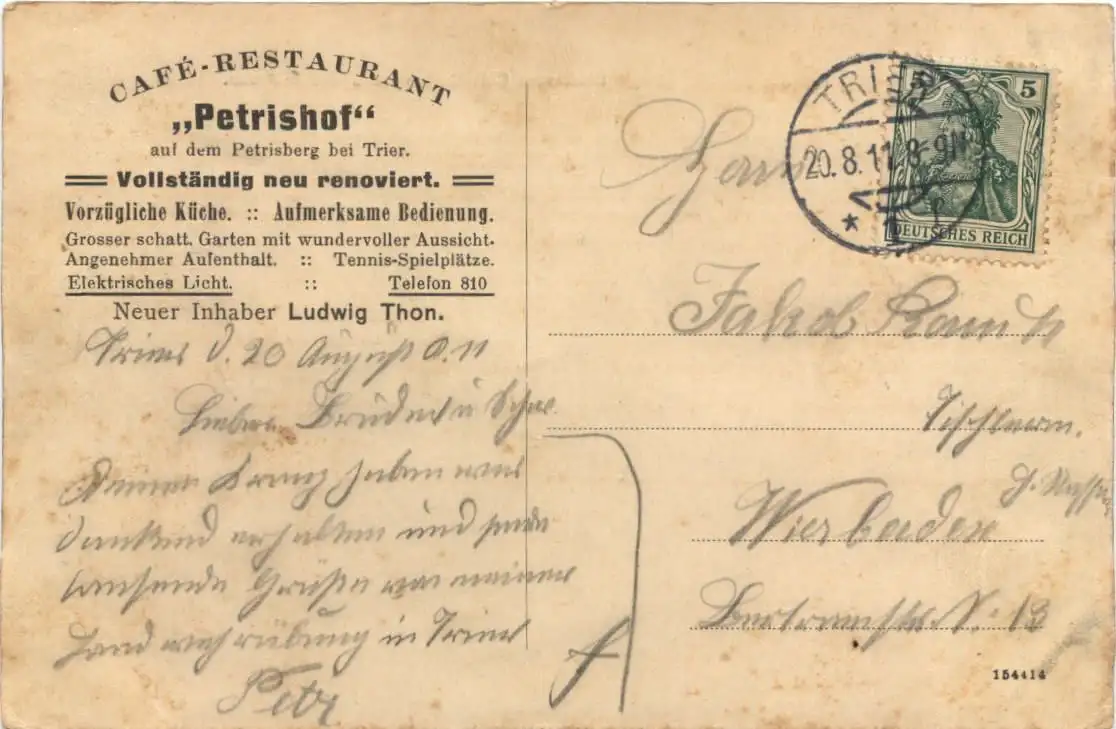 CAFÉ-RESTAURANT
„Petrishof“
auf dem Petrisberg bei Trier.
Vollständig neu renoviert.
Vorzügliche Küche. :: Aufmerksame Bedienung.
Grosser schatt. Garten mit wundervoller Aussicht.
Angenehmer Aufenthalt. :: Tennis-Spielplätze.
Elektrisches Licht. :: Telefon 810
Neuer Inhaber Ludwig Thon.
d. 20 August
Lieber Bruder u
haben
dankend erhalten und sende
tausende Grüße von meiner
in Trier
Petr
TRIER
20. 8. 11. 8-9N
* 1
5 5
DEUTSCHES REICH
Herrn
Jakob
Wiesbaden
13
154414